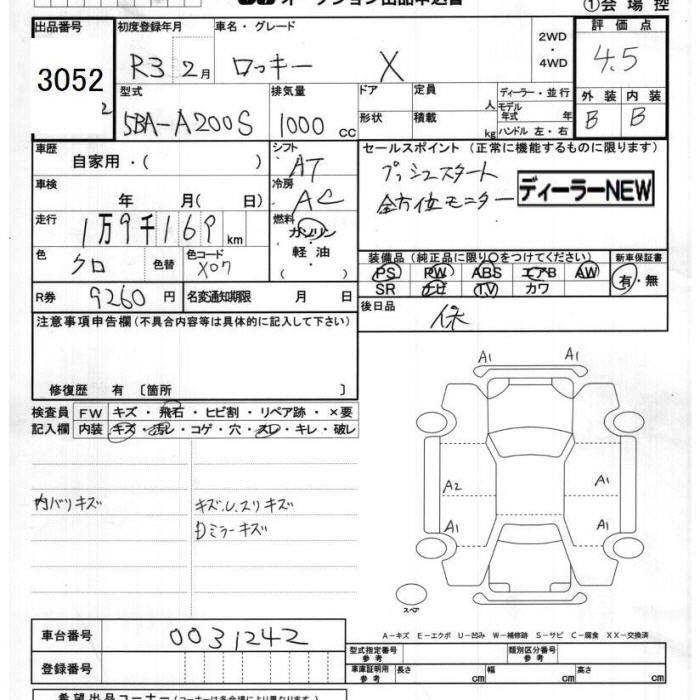 オークション出品申込書 ①会場控
出品番号 初度登録年月 車名・グレード 2WD ・ 4WD 評価点
3052 2 R3 2月 ロッキー X 4.5
型式 排気量 ドア 定員 人 ディーラー・並行 外装 内装
5BA-A200S 1000 cc 形状 積載 kg モデル年式 年 ハンドル 左・右 B B
車歴 自家用・( ) シフト AT セールスポイント (正常に機能するものに限ります)
車検 年 月( 日) 冷房 AC プッシュスタート
全方位モニター ディーラーNEW
走行 1万9千169km 燃料 ガソリン・軽油・( )
色 クロ 色替 色コード X07 装備品 (純正品に限り○をつけてください) 新車保証書
PS PW ABS エアB AW 有・無
SR ナビ TV カワ
R券 9260円 名変通知期限 月 日 後日品 保
注意事項申告欄(不具合内容等は具体的に記入して下さい)
修復歴 有 〔箇所 〕
検査員 FW キズ・飛石・ヒビ割・リペア跡・×要
記入欄 内装 キズ・汚レ・コゲ・穴・スレ・キレ・破レ
A1 A1
内バリキズ キズ.U.スリキズ A2 A1
Dミラーキズ A1 A1
スペア
車台番号 0031242 A-キズ E-エクボ U-凹み W-補修跡 S-サビ C-腐食 XX-交換済
型式指定番号 参考 類別区分番号 参考
登録番号 車庫証明用 参考 長さ cm 幅 cm 高さ cm
希望出品コーナー(コーナーは各会場により異なります)